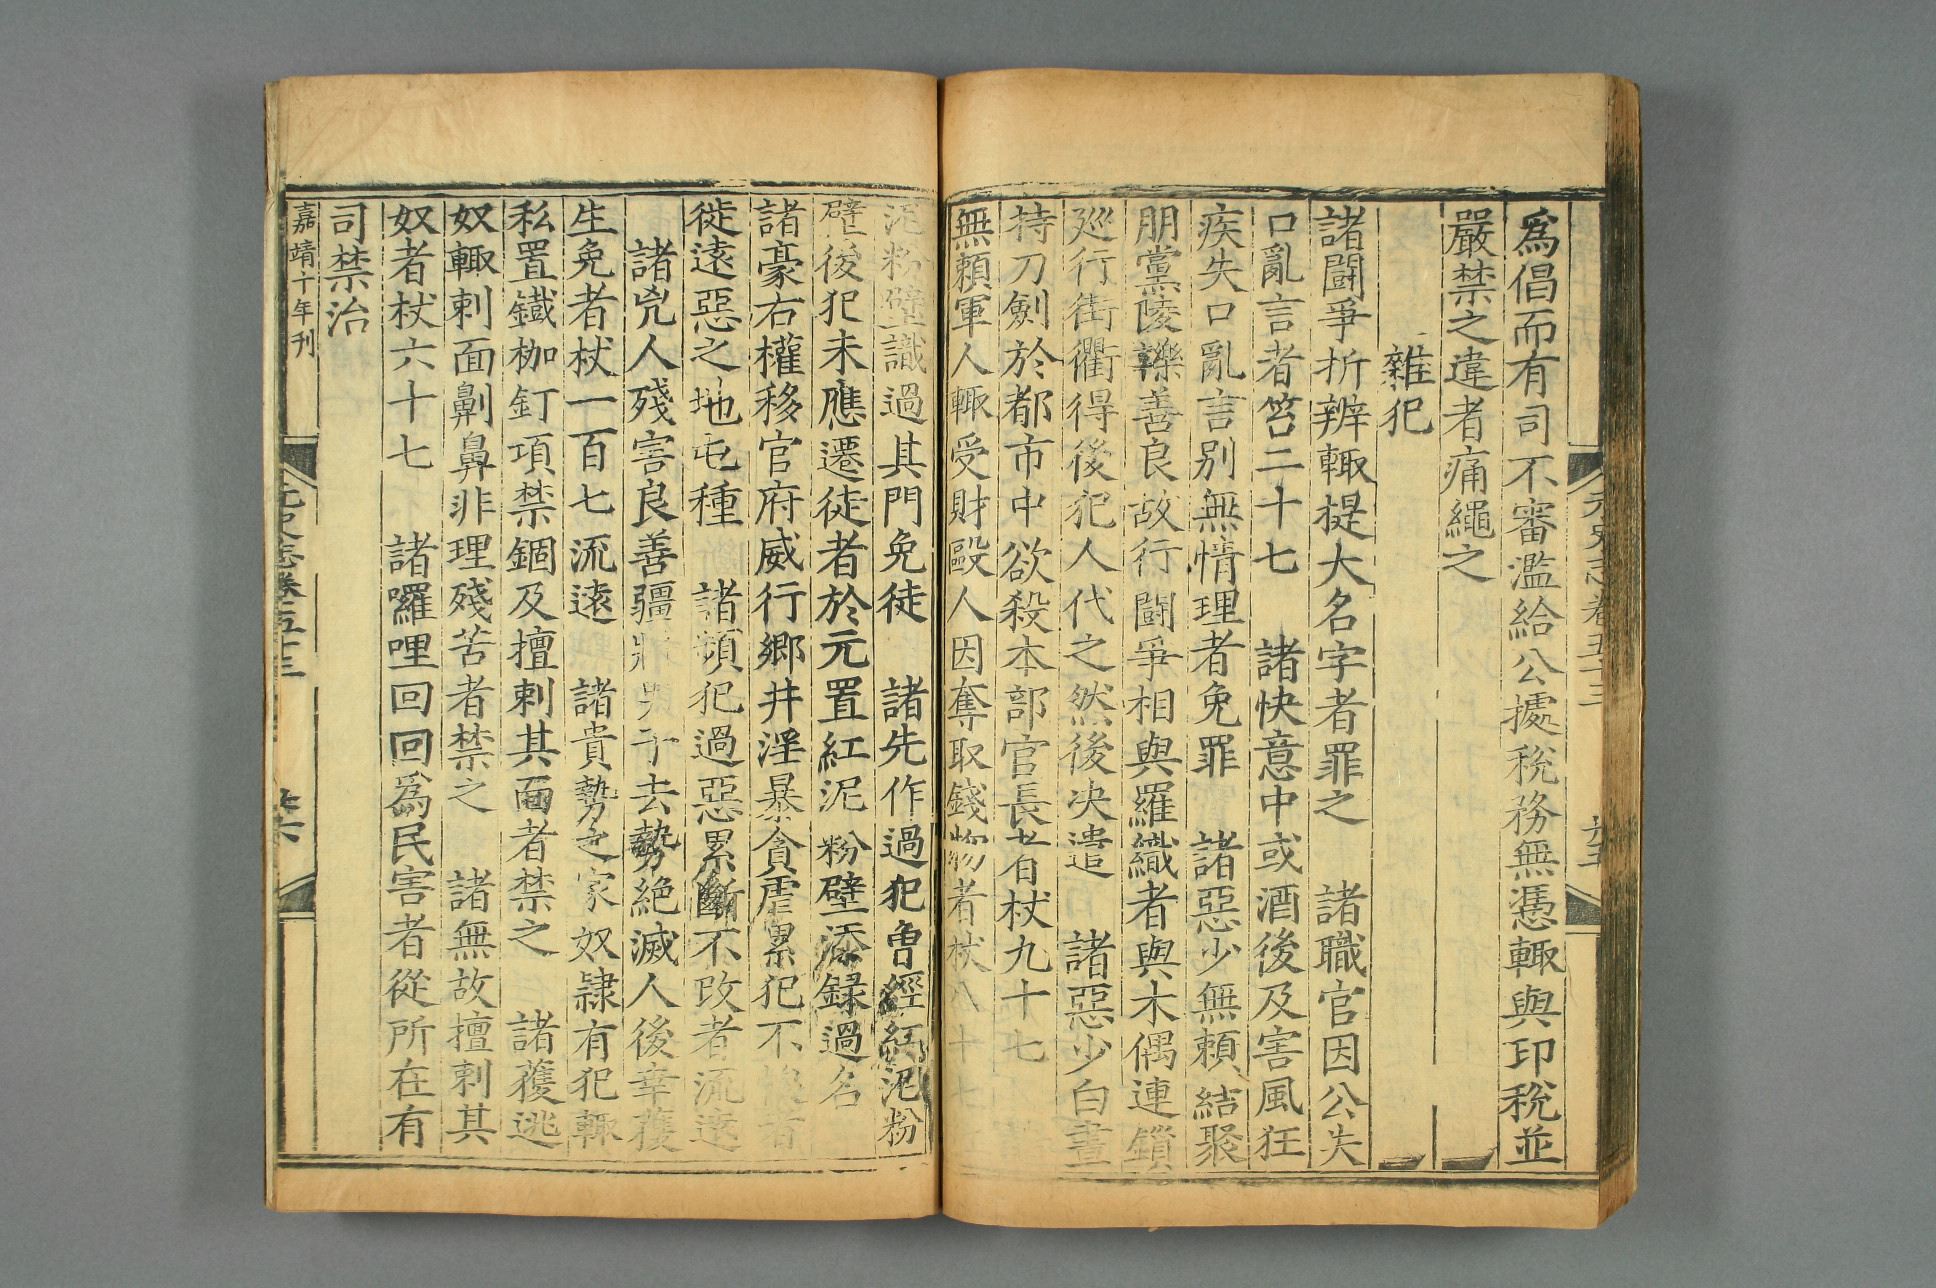 元史志卷五十三
六五
爲倡而有司不審濫給公據稅務無憑輙與印稅並
嚴禁之違者痛繩之
雜犯
諸鬪爭折辨輙提大名字者罪之　諸職官因公失
口亂言者笞二十七　諸快意中或酒後及害風狂
疾失口亂言別無情理者免罪　諸惡少無頼結聚
朋黨陵轢善良故行鬪爭相與羅織者與木偶連鎖
廵行街衢得後犯人代之然後决遣　諸惡少白晝
持刀劒於都市中欲殺本部官長者杖九十七
無頼軍人輙受財毆人因奪取錢物者杖八十七
泥粉壁識過其門免徒　諸先作過犯曾經紅泥粉
壁後犯未應遷徒者於元置紅泥粉壁添録過名
諸豪右權移官府威行鄉井淫暴貪虐累犯不悛者
徙遠惡之地屯種　諸頻犯過惡累斷不改者流遠
諸兇人殘害良善彊將男子去勢絶滅人後幸獲
生免者杖一百七流遠　諸貴勢之家奴隸有犯輙
私置鐵枷釘項禁錮及擅刺其面者禁之　諸獲逃
奴輙刺面劓鼻非理殘苦者禁之　諸無故擅刺其
奴者杖六十七　諸囉哩回回爲民害者從所在有
司禁治
嘉靖十年刊
元史志卷五十三
六